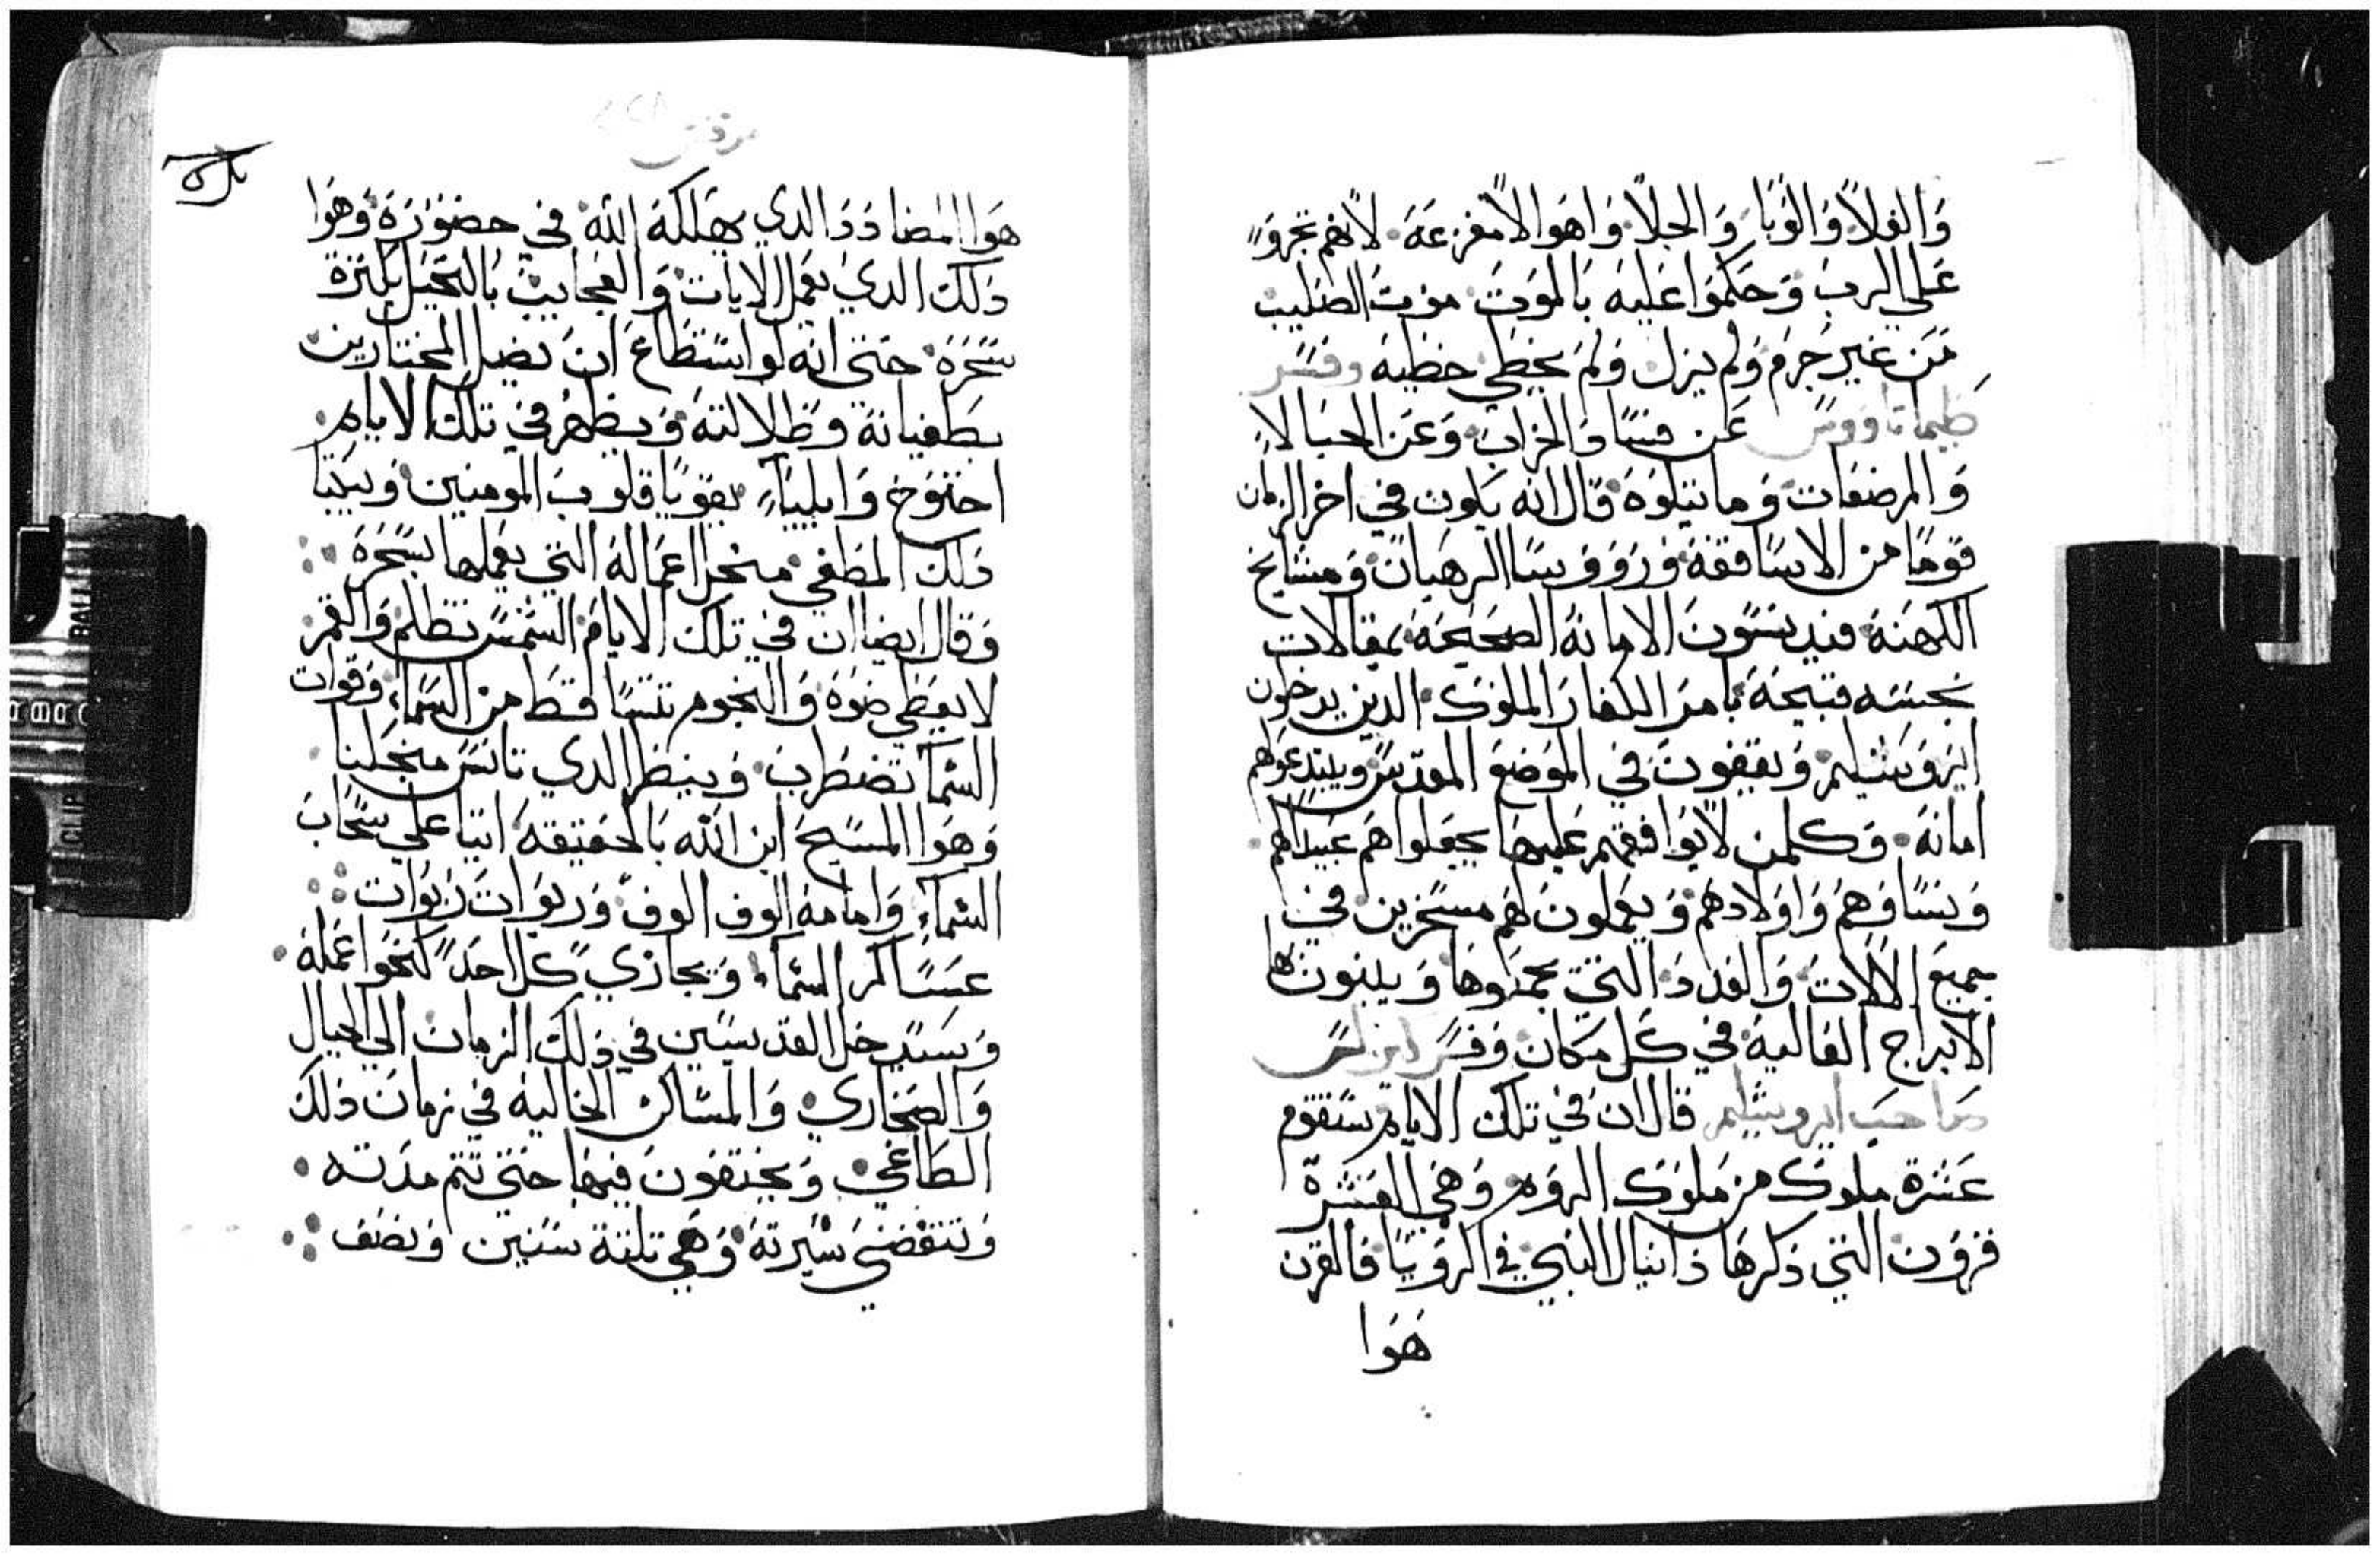 وَالغلاً وَالوَبَا وَالجلاً وَاهوَالاً مفزعَة لانهم تجروَا
عَلى الرب وَحَكموَا عَليه بَالموَت موَت الصَليب
مَن غير جُرم وَلم يزل وَلم يخطي خطيه وفسَر
عَن فسَاد الخرَاب وَعَن الحبَالا
وَالمرضعَات وَما يتلوَه قال انه يَكون في اخر الزمان
قوَمًا من الاسَاقفة وَرَووَسَا الرهبَان وَمشايخ
الكهنة فيدنسَون الامانه الصَحيحَة بمقالات
نجسَه قبيحَة بامرَ الكفارَ الملوَك الدين يدخلون
ايروَشليم وَيقفون في الموَضع المقدسَ ويبتدعوَا لهم
امانة وَكلمن لا يوَافقهم عَليهَا يجعَلوا هَم عَبيدَا لهم
وَنسَاوَهم وَاوَلادهم وَيعملون لهم مسَخرين في
جميع الالات وَالعدد التي عملوهَا وَيبنون لها
الابراج العَاليه في كل مَكان وَفسَر
صَاحب ايروشليم قال ان في تلك الايام ستقوم
عَشرة ملوَك من ملوَك الروَم وَهي العشرة
قروَن التي ذكرهَا دانيال النبي في الروَيَا فالقرن
هَوَا
مرقس
هوَا المضادَدَ الدي يهَلكه الله في حضوَرَة وَهوَا
دَلك الدي يعمل الايات وَالعجايب بالتخيل بكثرة
سَحَرَة حتي انه لو اسَتطَاع ان يضل المختارين
بطغيانه وَظلالته وَيظهر في تلك الايام
اخنوَخ وَايلياء يقوَيا قلوب المومنين وَيبكتا
دَلك المطغي من اجل اعمَاله التي يعَملها بسَحرَة
وَقال ايضا ان في تلك الايام الشمسَ تظلم وَالقمر
لا يعَطي ضوَه وَالنجوم تتسَاقط من السَماء وَقوات
السَما تضطرب وَينظر الدي تانسَ من اجلنا
وَهوَا المسَيح ابن الله بَالحَقيقة اتيا علي سَحَاب
السَماء وَامامه الوف الوف وَربوَات رَبوَات
عسَاكر السَماء وَيجازي كل احَد كنحوَا عمله
وَسَيدخل القديسَين في دَلك الزمان الي الجبال
وَالصَحاري وَالمسَاكن الخاليه في زمان دلك
الطَاغي وَيختفون فيهَا حتي تتم مدته
وَتنقضي سَيرته وَهي تلتة سَنين وَنصَف